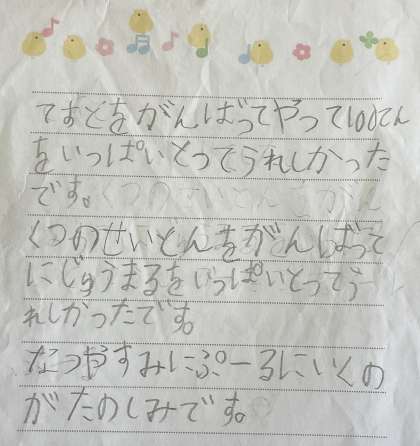 てすとをがんばってやって100てん
をいっぱいとってうれしかった
です。
くつのせいとんをがんばって
にじゅうまるをいっぱいとってう
れしかったです。
なつやすみにぷーるにいくの
がたのしみです。